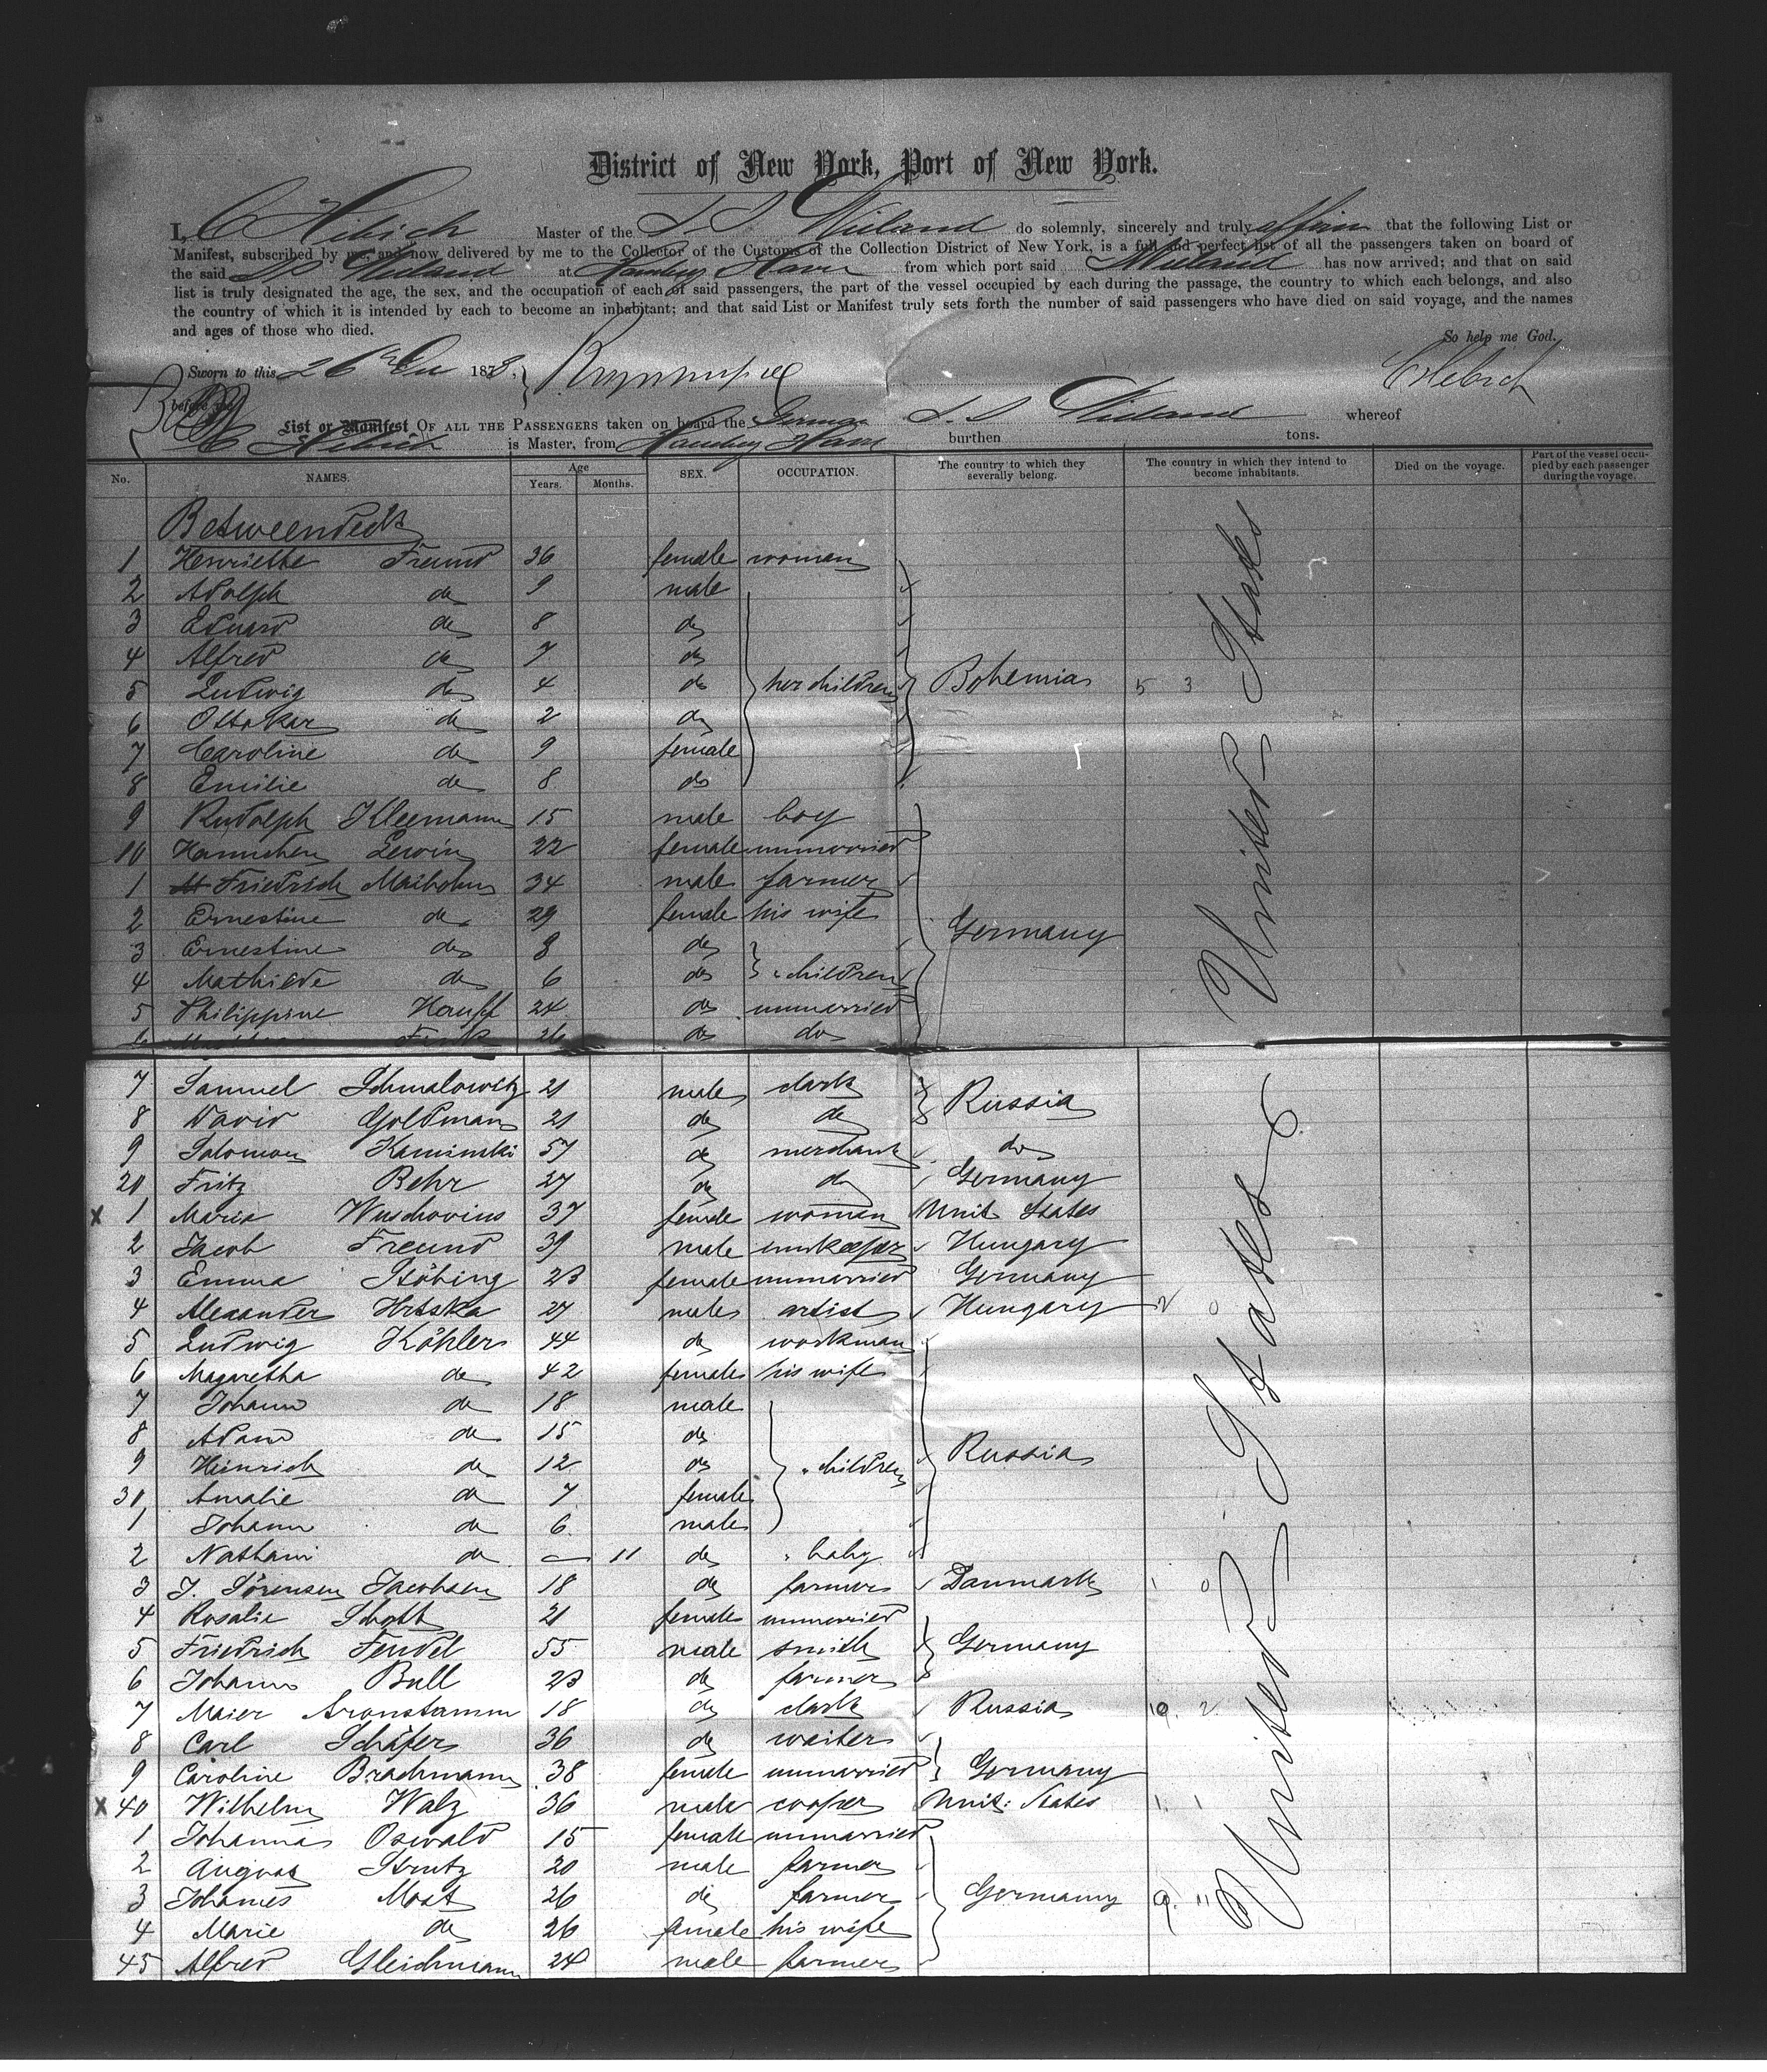 District of New York, Port of New York.
I, C Hebich Master of the S S Wieland do solemnly, sincerely and truly affirm that the following List or
Manifest, subscribed by me, and now delivered by me to the Collector of the Customs of the Collection District of New York, is a full and perfect list of all the passengers taken on board of
the said SS Wieland at Hamburg Havre from which port said Wieland has now arrived; and that on said
list is truly designated the age, the sex, and the occupation of each of said passengers, the part of the vessel occupied by each during the passage, the country to which each belongs, and also
the country of which it is intended by each to become an inhabitant; and that said List or Manifest truly sets forth the number of said passengers who have died on said voyage, and the names
and ages of those who died.
So help me God.
Sworn to this 26th Dec 1878. CHebich
before me
List or Manifest OF ALL THE PASSENGERS taken on board the German S. S Wieland whereof
C Hebich is Master, from Hamburg Havre burthen tons.
No. NAMES. Age Years. Months. SEX. OCCUPATION. The country to which they severally belong. The country in which they intend to become inhabitants. Died on the voyage. Part of the vessel occupied by each passenger during the voyage.
Betweendeck
1 Henriette Freund 36 female woman
2 Adolph do 9 male
3 Eduard do 8 do
4 Alfred do 7 do
5 Ludwig do 4 do her children Bohemia 5 3
6 Ottokar do 2 do
7 Caroline do 9 female
8 Emilie do 8 do
9 Rudolph Kleemann 15 male boy
10 Hannchen Lewin 22 female unmarried
1 Friedrich Maibohm 34 male farmer
2 Ernestine do 29 female his wife Germany
3 Ernestine do 8 do
4 Mathilde do 6 do " children
5 Philippine Hauff 24 do unmarried
6 26 do do
7 Samuel Schmalowitz 21 male clark Russia
8 David Goldmann 21 do do
9 Salomon Kaminski 57 do merchant do
20 Fritz Behr 27 do do Germany
x 1 Maria Wuschovius 37 female woman Unit States
2 Jacob Freund 39 male innkeeper Hungary
3 Emma Stöbing 23 female unmarried Germany
4 Alexander Hrtska 27 male artist Hungary 2 0
5 Ludwig Köhler 44 do workman
6 Magaretha do 42 female his wife
7 Johann do 18 male
8 Adam do 15 do
9 Heinrich do 12 do " children Russia
30 Amalie do 7 female
1 Johann do 6 male
2 Nathani do — 11 do " baby
3 J. Sörensen Jacobsen 18 do farmer Danmark 1 0
4 Rosalie Schott 21 female unmarried
5 Friedrich Fendel 55 male smith Germany
6 Johann Bull 23 do farmer
7 Maier Aronstamm 18 do clark Russia 10 2
8 Carl Schäfer 36 do waiter
9 Caroline Brachmann 38 female unmarried Germany
x 40 Wilhelm Walz 36 male cooper Unit: States 1 1
1 Johanna Oswald 15 female unmarried
2 August Strutz 20 male farmer
3 Johannes Mast 26 do farmer Germany 9 11
4 Marie do 26 female his wife
45 Alfred Gleichmann 24 male farmer
United States
United States